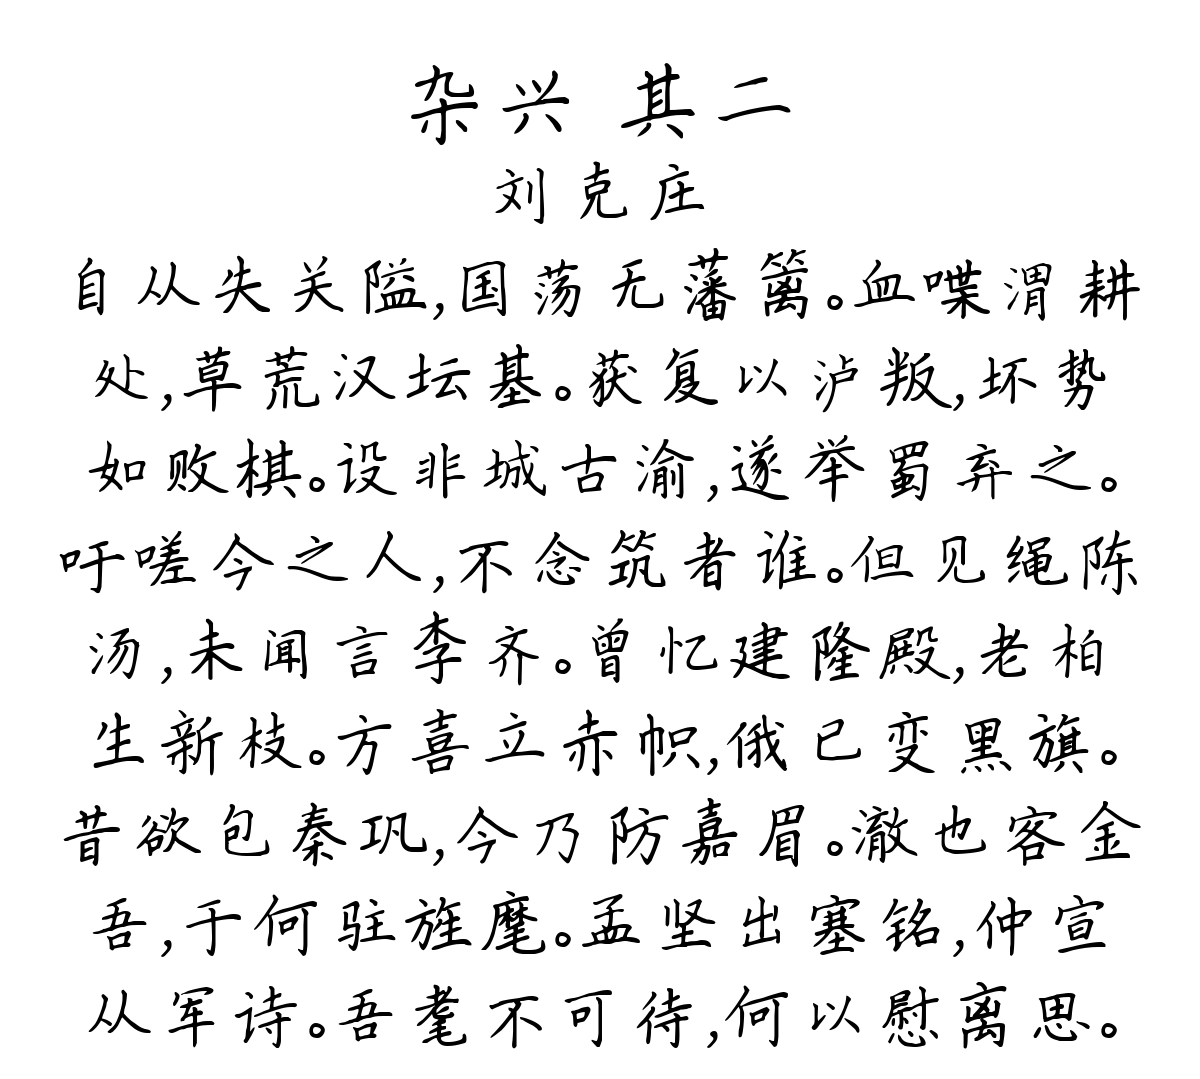 杂兴 其二
刘克庄
自从失关隘,国荡无藩篱。血喋渭耕
处,草荒汉坛基。获复以泸叛,坏势
如败棋。设非城古渝,遂举蜀弃之。
吁嗟今之人,不念筑者谁。但见绳陈
汤,未闻言李齐。曾忆建隆殿,老柏
生新枝。方喜立赤帜,俄已变黑旗。
昔欲包秦巩,今乃防嘉眉。澈也客金
吾,于何驻旌麾。孟坚出塞铭,仲宣
从军诗。吾耄不可待,何以慰离思。